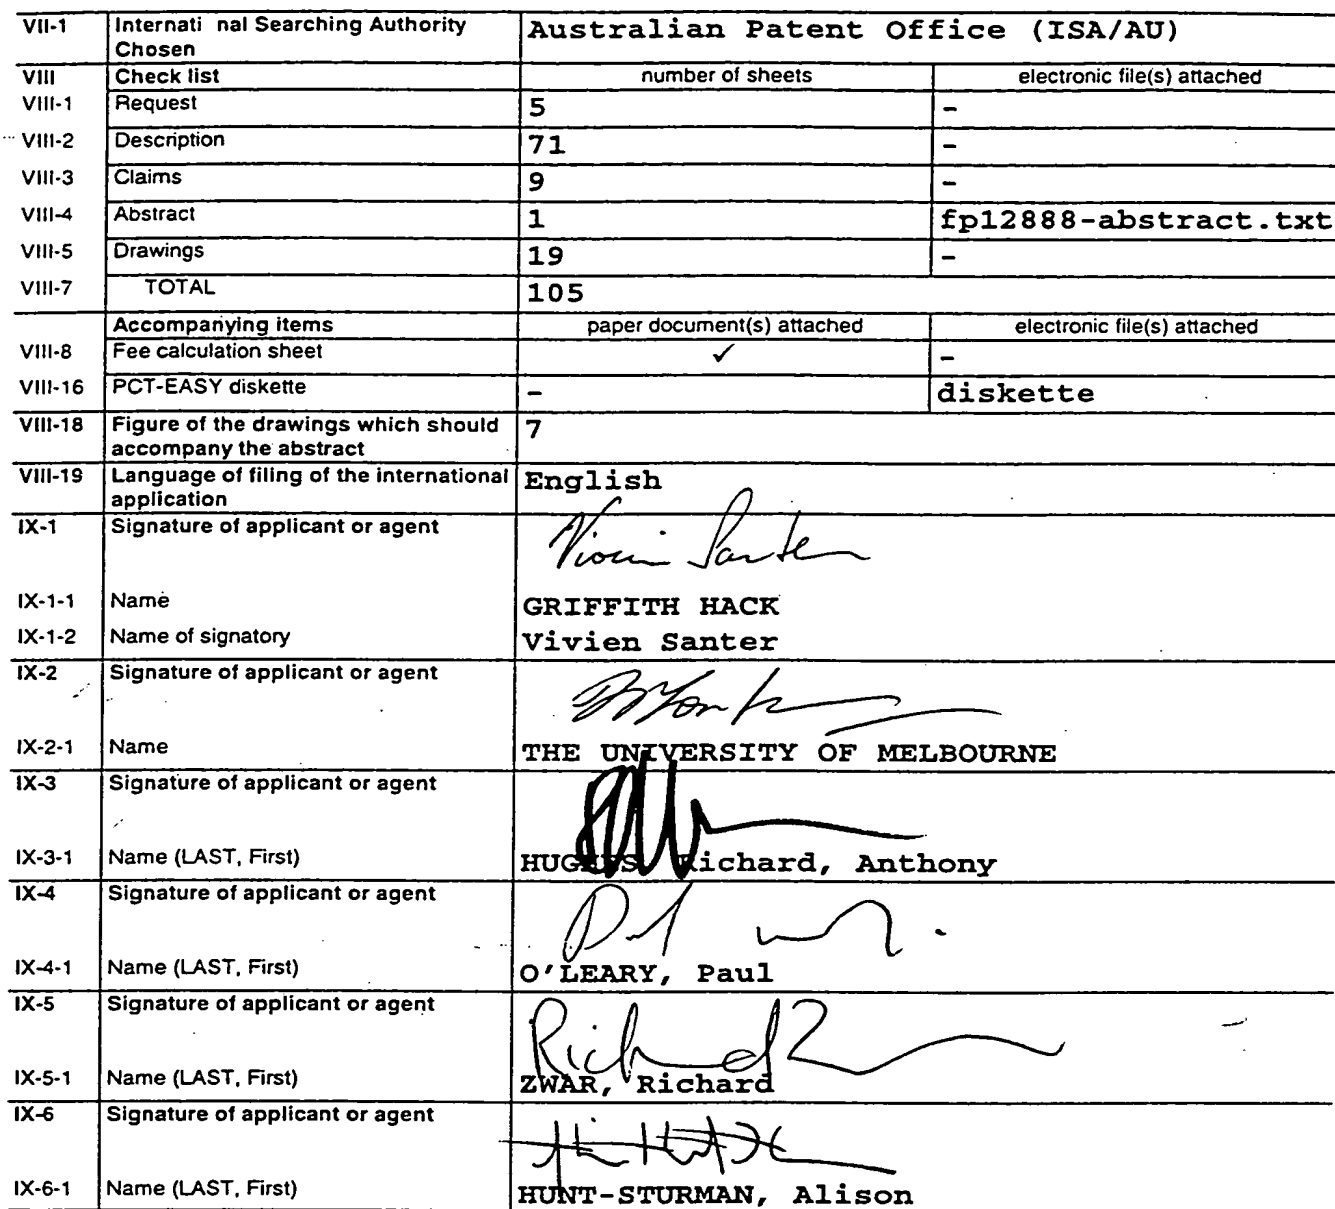 VII-1 Internati nal Searching Authority Australian Patent Office (ISA/AU)
Chosen
VIII Check list number of sheets electronic file(s) attached
VIII-1 Request 5 -
VIII-2 Description 71 -
VIII-3 Claims 9 -
VIII-4 Abstract 1 fp12888-abstract.txt
VIII-5 Drawings 19 -
VIII-7 TOTAL 105
Accompanying items paper document(s) attached electronic file(s) attached
VIII-8 Fee calculation sheet ✓ -
VIII-16 PCT-EASY diskette - diskette
VIII-18 Figure of the drawings which should 7
accompany the abstract
VIII-19 Language of filing of the international English
application
IX-1 Signature of applicant or agent
Vivien Santer
IX-1-1 Name GRIFFITH HACK
IX-1-2 Name of signatory Vivien Santer
IX-2 Signature of applicant or agent
IX-2-1 Name THE UNIVERSITY OF MELBOURNE
IX-3 Signature of applicant or agent
IX-3-1 Name (LAST, First) HUGHES, Richard, Anthony
IX-4 Signature of applicant or agent
IX-4-1 Name (LAST, First) O'LEARY, Paul
IX-5 Signature of applicant or agent
Richard Z
IX-5-1 Name (LAST, First) ZWAR, Richard
IX-6 Signature of applicant or agent
IX-6-1 Name (LAST, First) HUNT-STURMAN, Alison